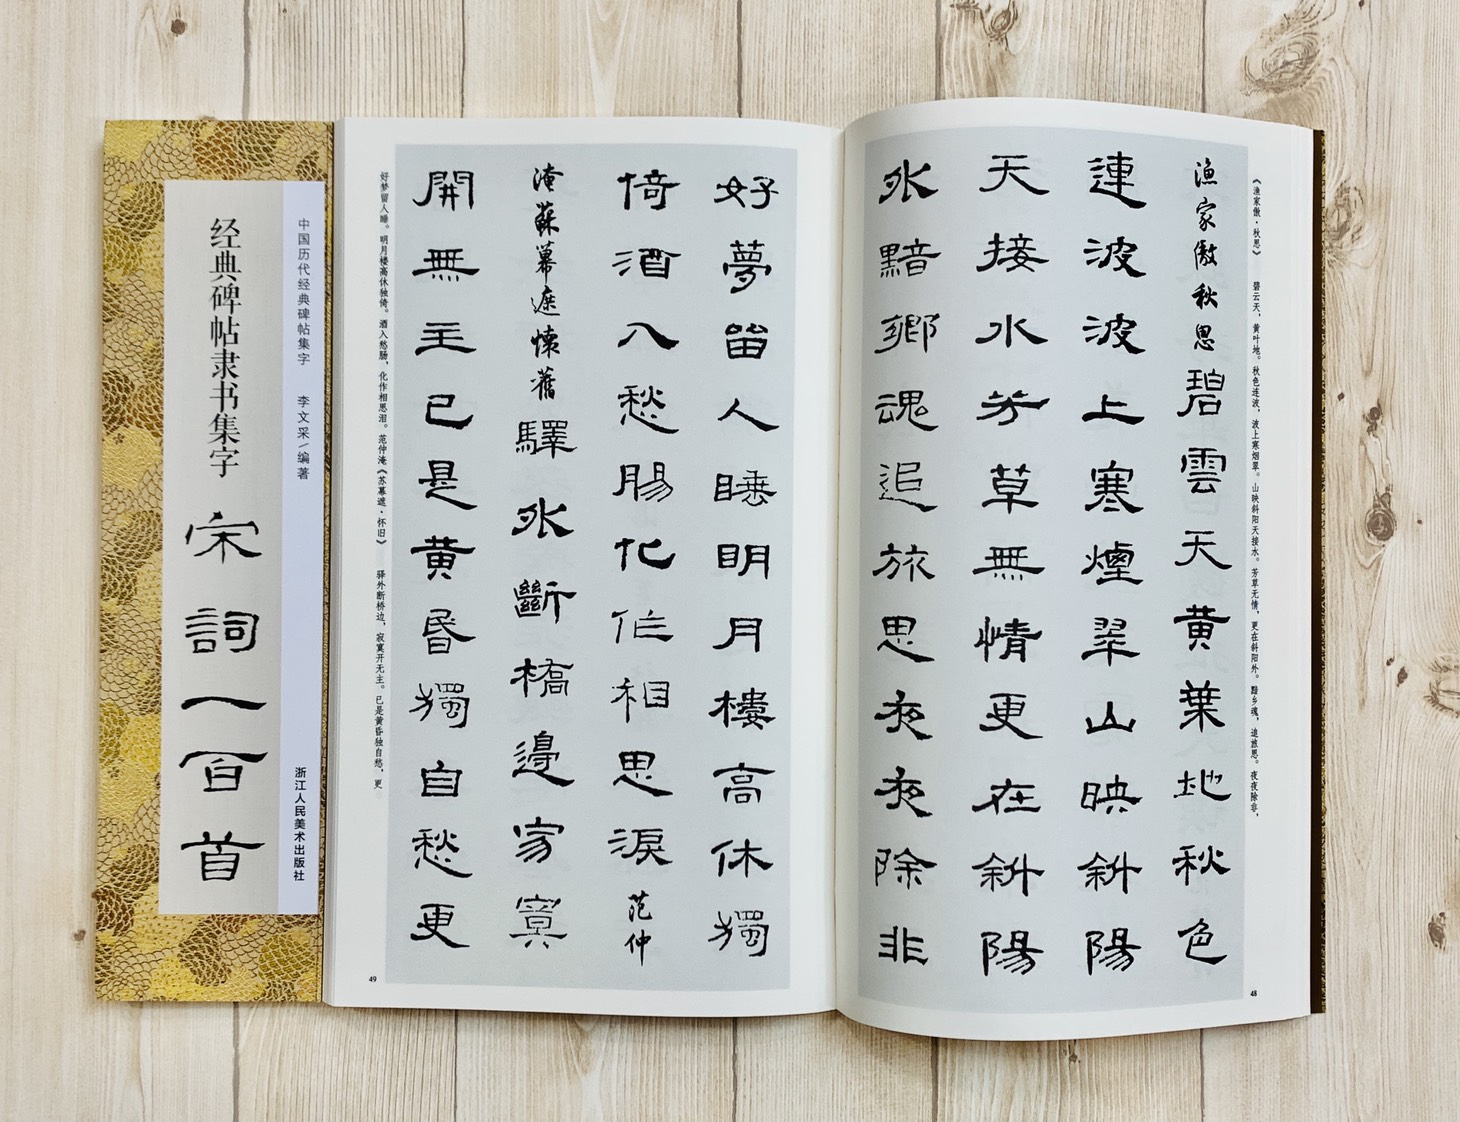 《渔家傲·秋思》 碧云天，黄叶地。秋色连波，波上寒烟翠。山映斜阳天接水。芳草无情，更在斜阳外。黯乡魂，追旅思。夜夜除非，
漁家傲秋思碧雲天黄葉地秋色
連波波上寒煙翠山映斜陽
天接水芳草無情更在斜陽
外黯鄉魂追旅思夜夜除非
48
好夢留人睡明月樓高休獨
倚酒入愁腸化作相思淚范仲
淹蘇幕遮懷舊驛外斷橋邊寂寞
開無主已是黄昏獨自愁更
好梦留人睡。明月楼高休独倚。酒入愁肠，化作相思泪。范仲淹《苏幕遮·怀旧》 驿外断桥边，寂寞开无主。已是黄昏独自愁，更
49
中国历代经典碑帖集字 李文采/编著 浙江人民美术出版社
经典碑帖隶书集字 宋詞一百首